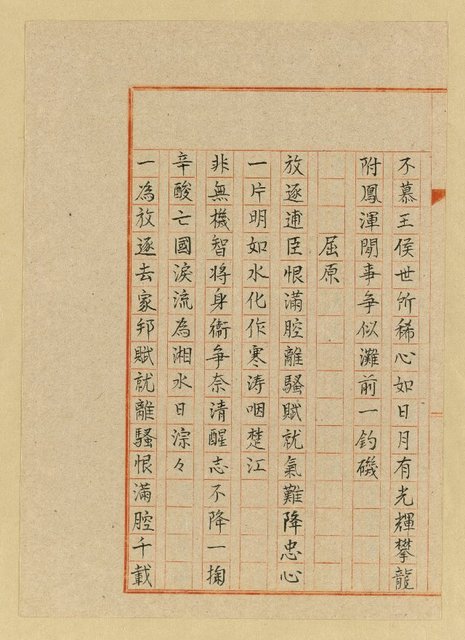 不慕王侯世所稀心如日月有光輝攀龍
附鳳渾閒事爭似灘前一釣磯
屈原
放逐逋臣恨滿腔離騷賦就氣難降忠心
一片明如水化作寒涛咽楚江
非無機智將身衛爭奈清醒志不降一掬
辛酸亡國淚流為湘水日淙々
一為放逐去家邦賦就離騷恨滿腔千載